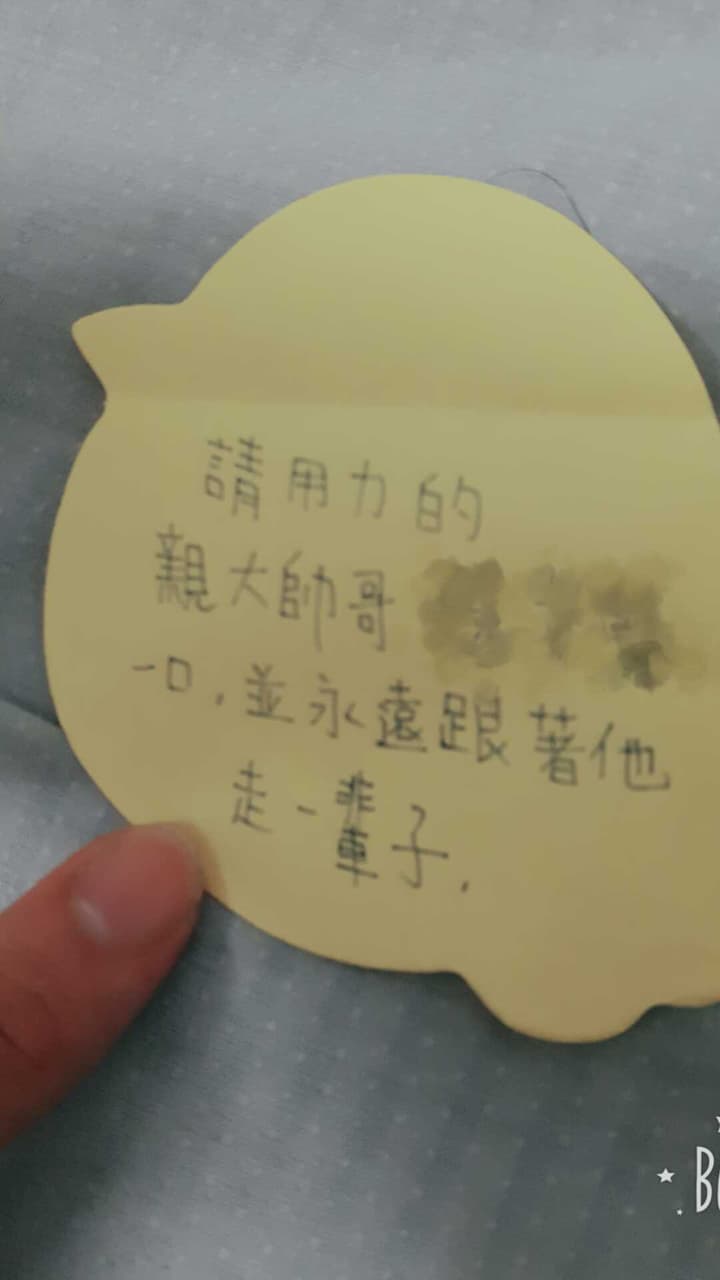 請用力的
親大帥哥
一口,並永遠跟著他
走一輩子,